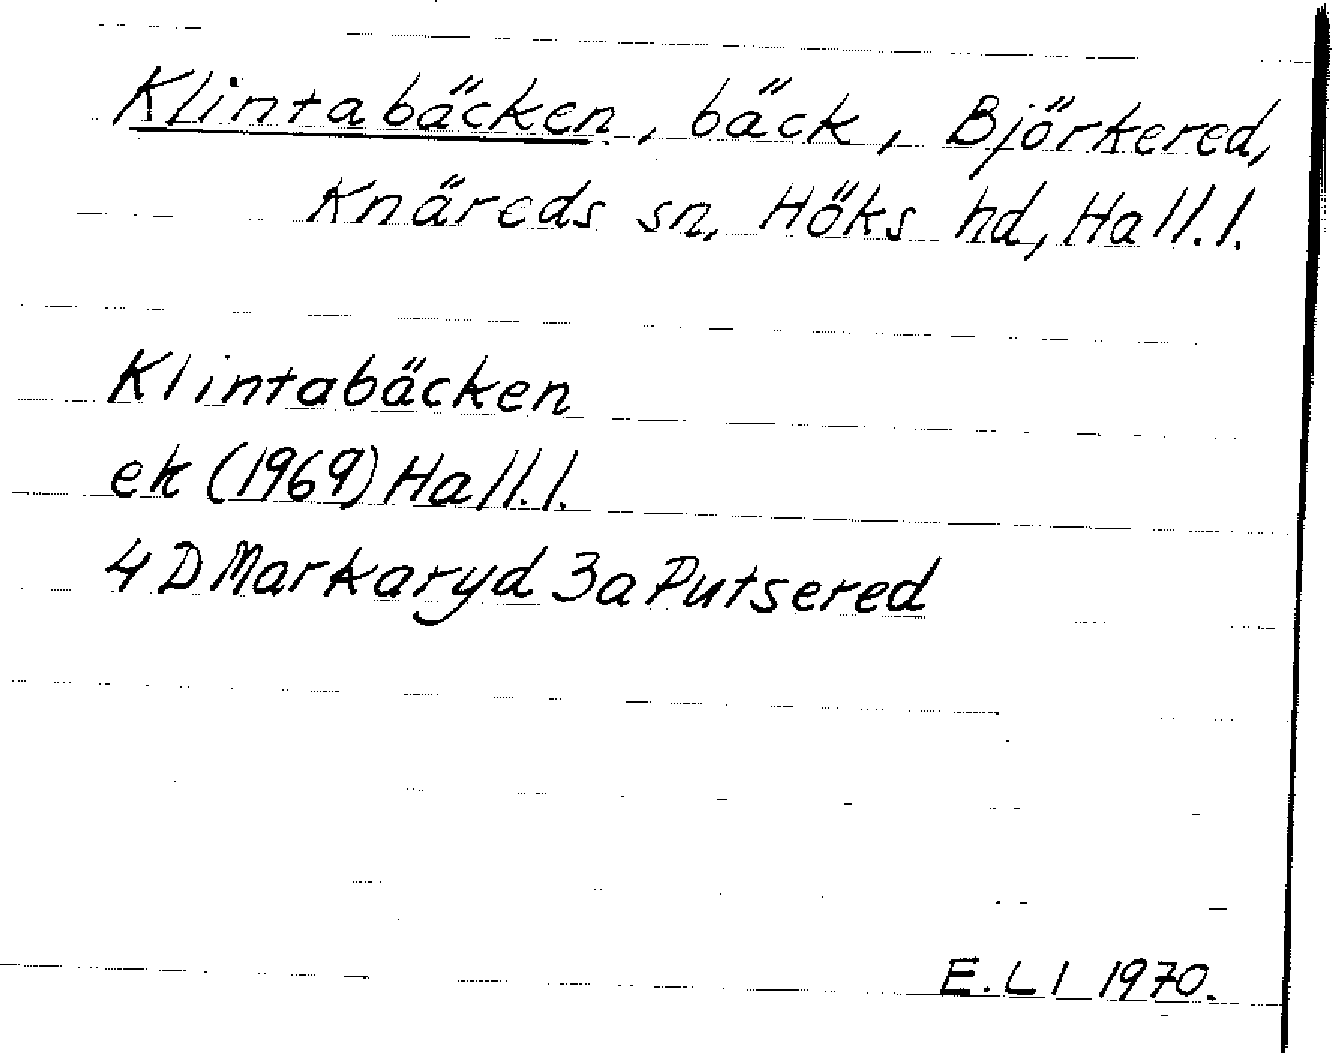 Klintabäcken, bäck, Björkered,
Knäreds sn, Höks hd, Hall.l.
Klintabäcken
ek (1969) Hall.l.
4D Markaryd 3a Putsered
E.Ll 1970.